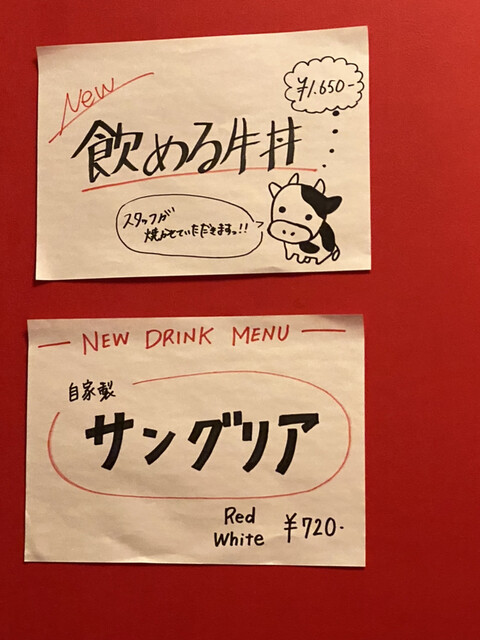 New
¥1.650-
飲める牛丼
スタッフが
焼かせていただきますっ!!
NEW DRINK MENU
自家製
サングリア
Red
White
¥720-